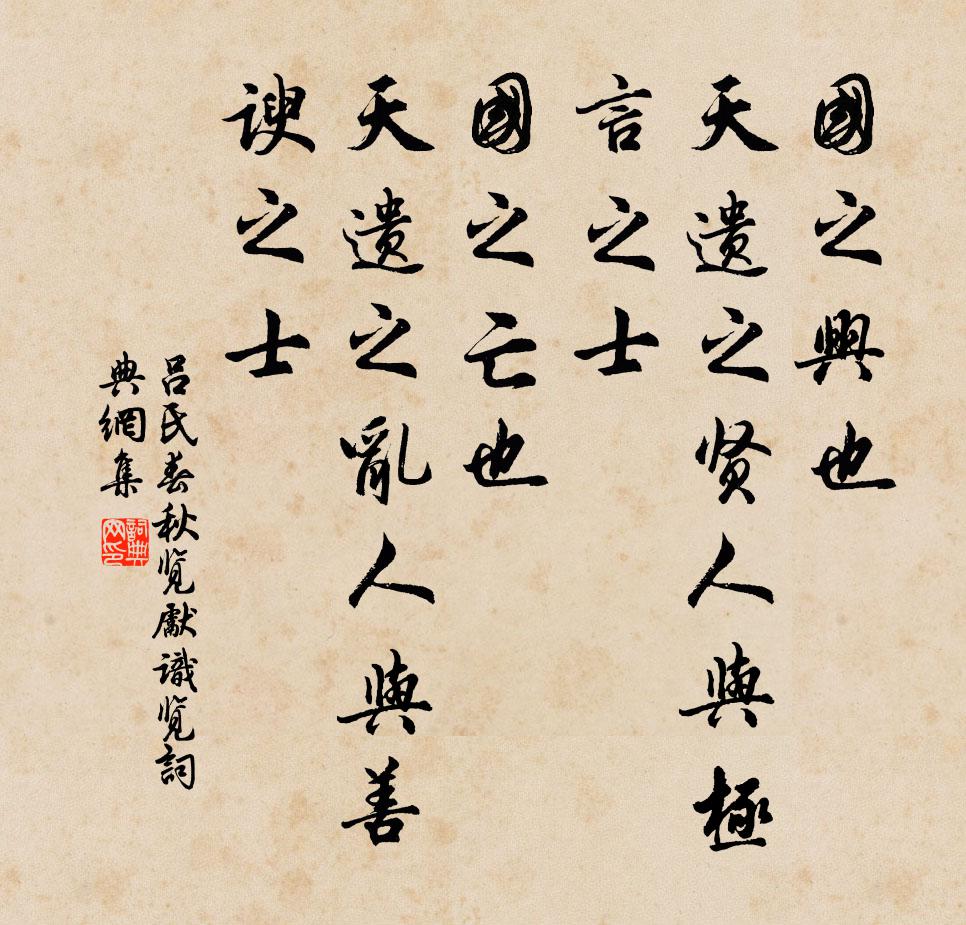 國之興也
天遺之贤人與極
言之士
國之亡也
天遺之亂人與善
諛之士
吕氏春秋览獻識览詞
典網集
詞典
网印